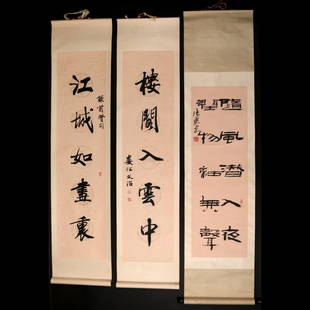 隨風潛入夜
潤物細無聲
樓閣入雲中
婁江文治
江城如畫裏